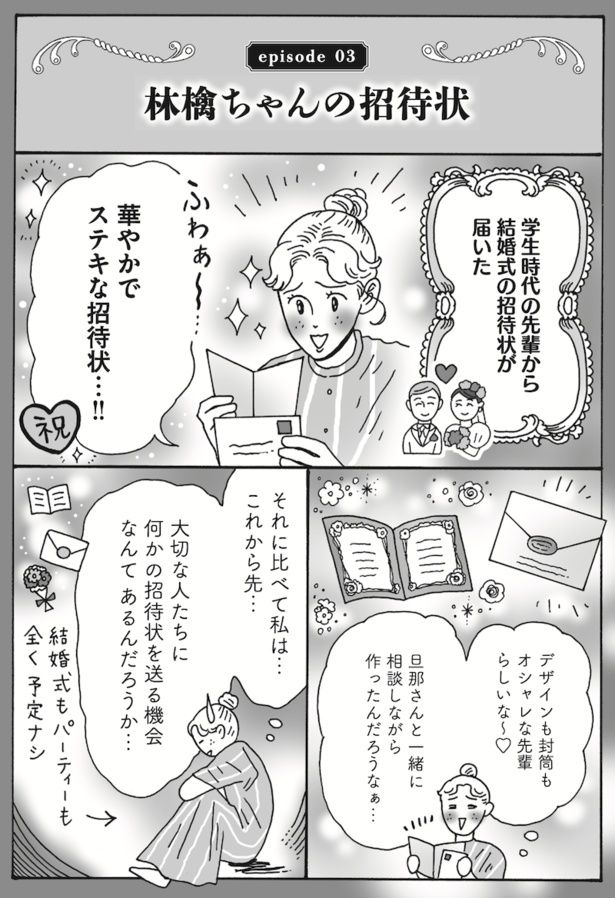 episode 03
林檎ちゃんの招待状
学生時代の先輩から
結婚式の招待状が
届いた
ふわぁ〜…
華やかで
ステキな招待状…!!
祝
デザインも封筒も
オシャレな先輩
らしいな〜♡
旦那さんと一緒に
相談しながら
作ったんだろうなぁ…
それに比べて私は…
これから先…
大切な人たちに
何かの招待状を送る機会
なんて あるんだろうか…
結婚式もパーティーも
全く予定ナシ